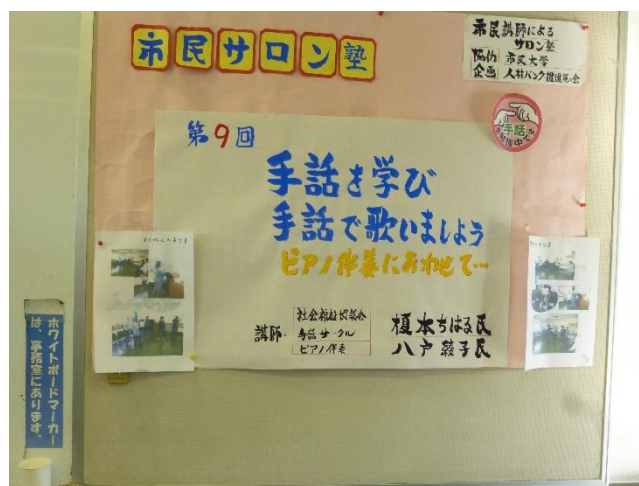 市民サロン塾
市民講師による
サロン塾
協働 市民大学
企画 人材バンク推進の会
手話
第9回
手話を学び
手話で歌いましょう
ピアノ伴奏にあわせて…
講師
社会福祉協議会
手話サークル
ピアノ伴奏
榎本ちはる氏
八戸綾子氏
ホワイトボードマーカー
は、事務室にあります。